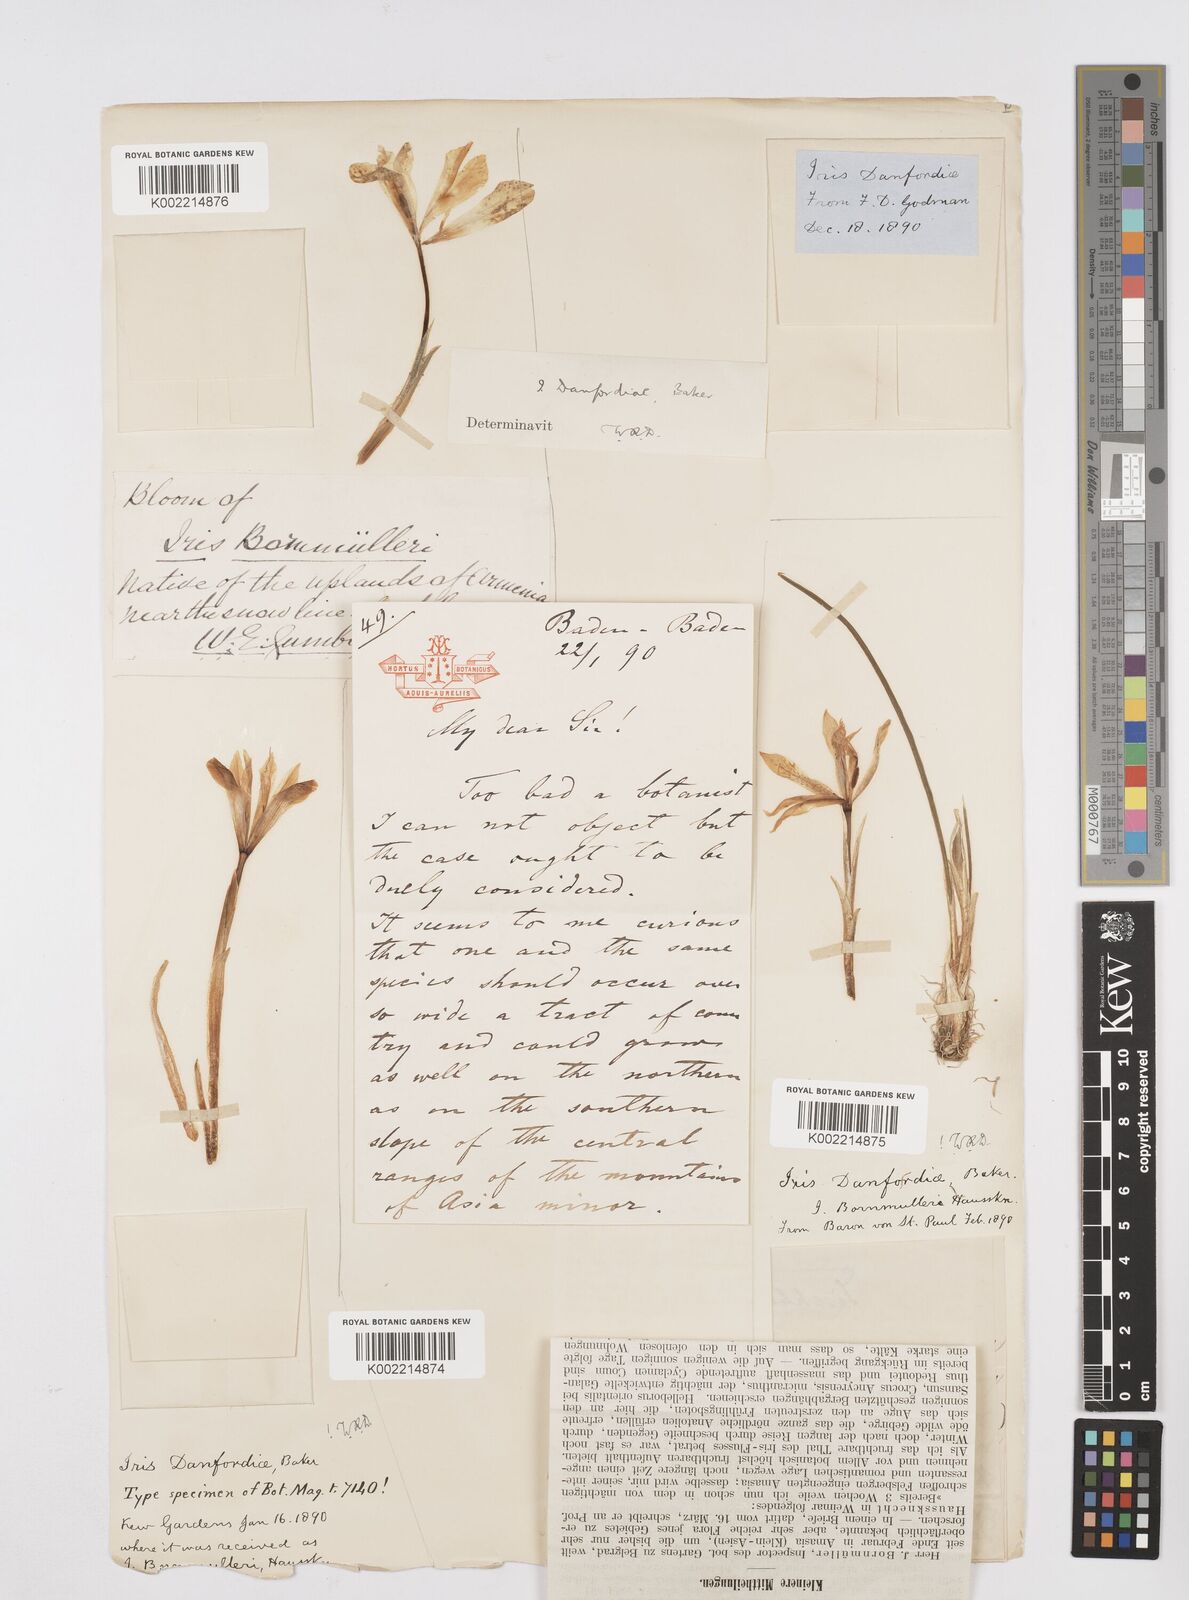 ROYAL BOTANIC GARDENS KEW
K002214876
Iris Danfordiæ
From F. D. Godman
Dec. 18. 1890
I Danfordiae, Baker
Determinavit W.R.D.
Bloom of
Iris Bornmülleri
Native of the uplands of Armenia
near the snow line.
W. E. Gumb
49.
HORTUS BOTANICUS
AQUIS-AURELIIS
Baden-Baden
22/1 90
My dear Sir!
Too bad a botanist
I can not object but
the case ought to be
duely considered.
It seems to me curious
that one and the same
species should occur over
so wide a tract of coun
try and could grow
as well on the northern
as on the southern
slope of the central
ranges of the mountains
of Asia minor.
ROYAL BOTANIC GARDENS KEW
K002214875
! W.R.D.
Iris Danfordiæ, Baker.
I. Bornmulleri Hausskn.
From Baron von St. Paul Feb. 1890
ROYAL BOTANIC GARDENS KEW
K002214874
! W.R.D.
Iris Danfordiæ, Baker
Type specimen of Bot. Mag. t. 7140!
Kew Gardens Jan 16. 1890
where it was received as
I. Bornmulleri, Hausskn
Kleinere Mittheilungen.
Herr J. Bornmüller, Inspector des bot. Gartens zu Belgrad, weilt
seit Ende Februar in Anasia (Klein-Asien), um die bisher nur sehr
oberflächlich bekannte, aber sehr reiche Flora jenes Gebietes zu er-
forschen. — In einem Briefe, datirt vom 16. März, schreibt er an Prof.
Haussknecht in Weimar folgendes:
»Bereits 3 Wochen weile ich nun schon in dem von mächtigen
schroffen Felsbergen eingeengten Anasia; dasselbe wird mir, seiner inte-
ressanten und romantischen Lage wegen, noch längere Zeit einen ange-
nehmen und vor Allem botanisch höchst fruchtbaren Aufenthalt bieten.
Als ich das fruchtbare Thal des Iris-Flusses betrat, war es fast noch
Winter, doch nach der langen Reise durch beschneite Gegenden, durch
öde wilde Gebirge, die das ganze nördliche Anatolien erfüllen, erfreute
sich das Auge an den zerstreuten Frühlingsboten, die hier an den
sonnigen geschützten Bergabhängen erschienen. Helleborus orientalis bei
Samsun, Crocus Ancyrensis, micranthus, der mächtig entwickelte Galan-
thus Redoutei und das massenhaft auftretende Cyclamen Coum sind
bereits im Rückgang begriffen. — Auf die wenigen sonnigen Tage folgte
eine starke Kälte, so dass man sich in den ofenlosen Wohnungen
inches
Density
Don Williams
M000767
centimeters
Royal Botanic Gardens
Kew
0 1 2 3 4 5 6 7 8 9 10
cm
copyright reserved